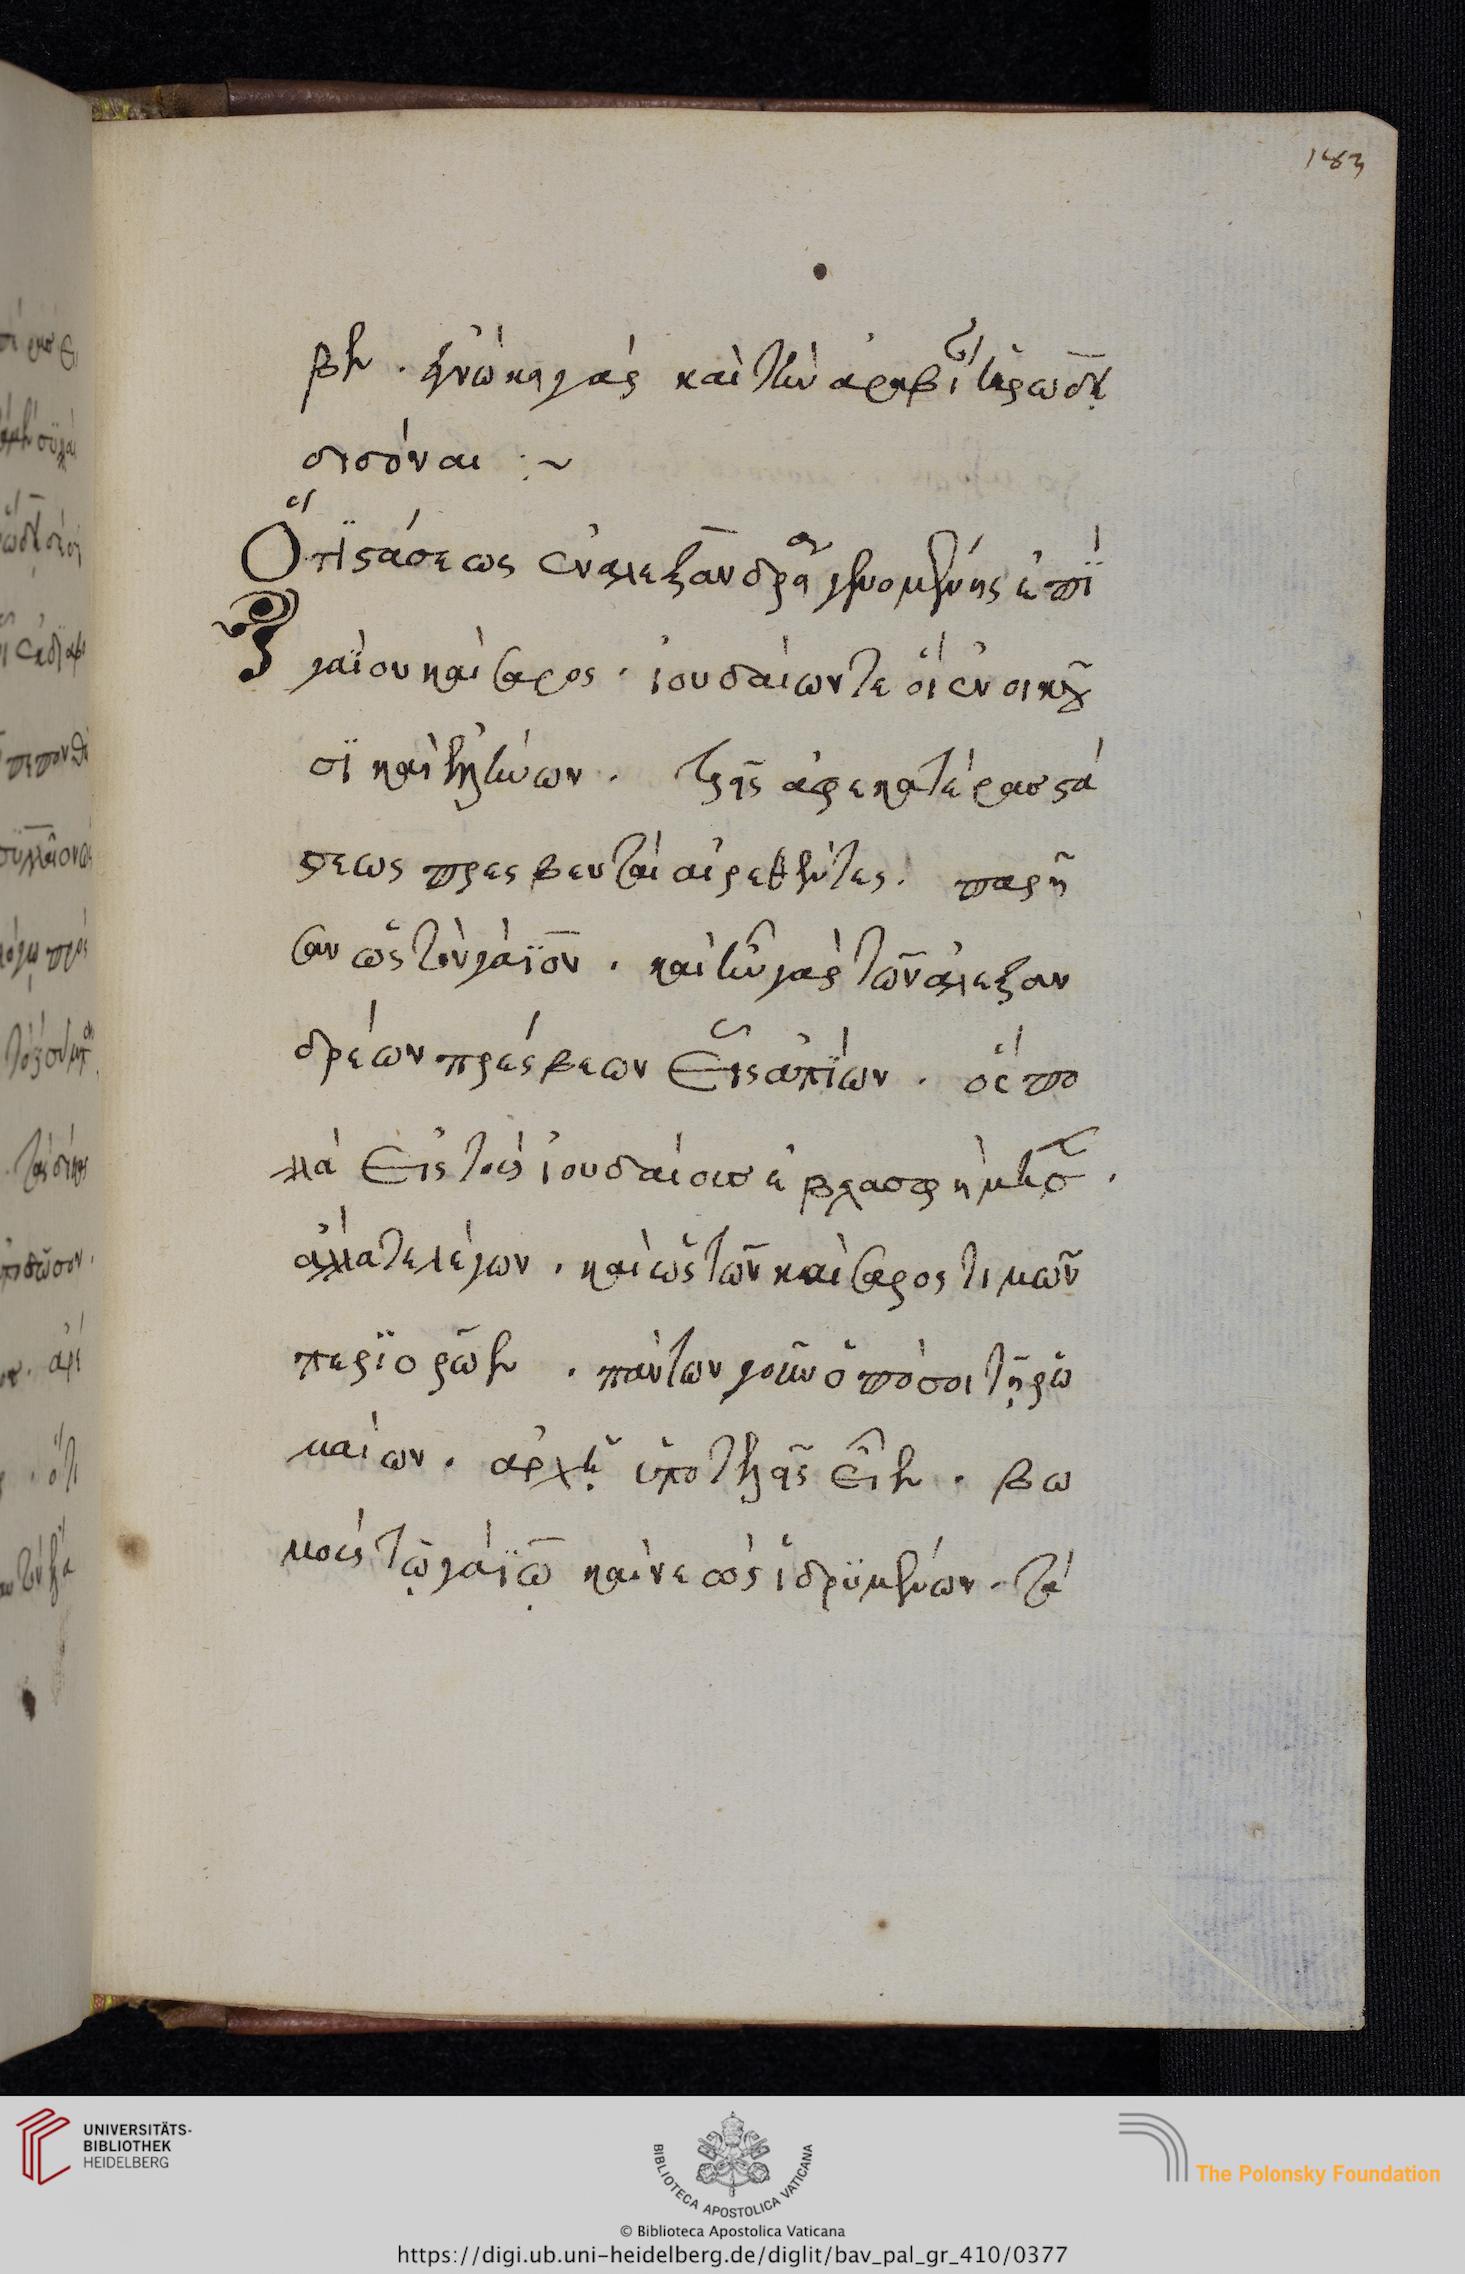 183
βειν · ἐγνώκει γὰρ καὶ τὴν ἀραβίαν ἡρώδῃ
διδόναι :~
Ὅτι στάσεως ἐν ἀλεξανδρείᾳ γενομένης ἐπὶ
γαΐου καίσαρος · ἰουδαίων τε οἳ ἐνοικοῦ
σι καὶ ἑλλήνων · τρεῖς ἀφ ἑκατέρας στά
σεως πρεσβευταὶ αἱρεθέντες · παρῆ
σαν ὡς τὸν γάϊον · καὶ ἦν γὰρ τῶν ἀλεξαν
δρέων πρέσβεων εἷς ἀπίων · ὃς πο
λλὰ εἰς τοὺς ἰουδαίους ἐβλασφήμησεν ·
ἄλλα τε λέγων · καὶ ὡς τῶν καίσαρος τιμῶν
περιορῶεν · πάντων γοῦν ὁπόσοι τῇ ῥω
μαίων · ἀρχῇ ὑποτελεῖς εἶεν · βω
μοὺς τῷ γαΐῳ καὶ νεὼς ἱδρυμένων · τά
UNIVERSITÄTS-
BIBLIOTHEK
HEIDELBERG
BIBLIOTECA APOSTOLICA VATICANA
The Polonsky Foundation
© Biblioteca Apostolica Vaticana
https://digi.ub.uni-heidelberg.de/diglit/bav_pal_gr_410/0377